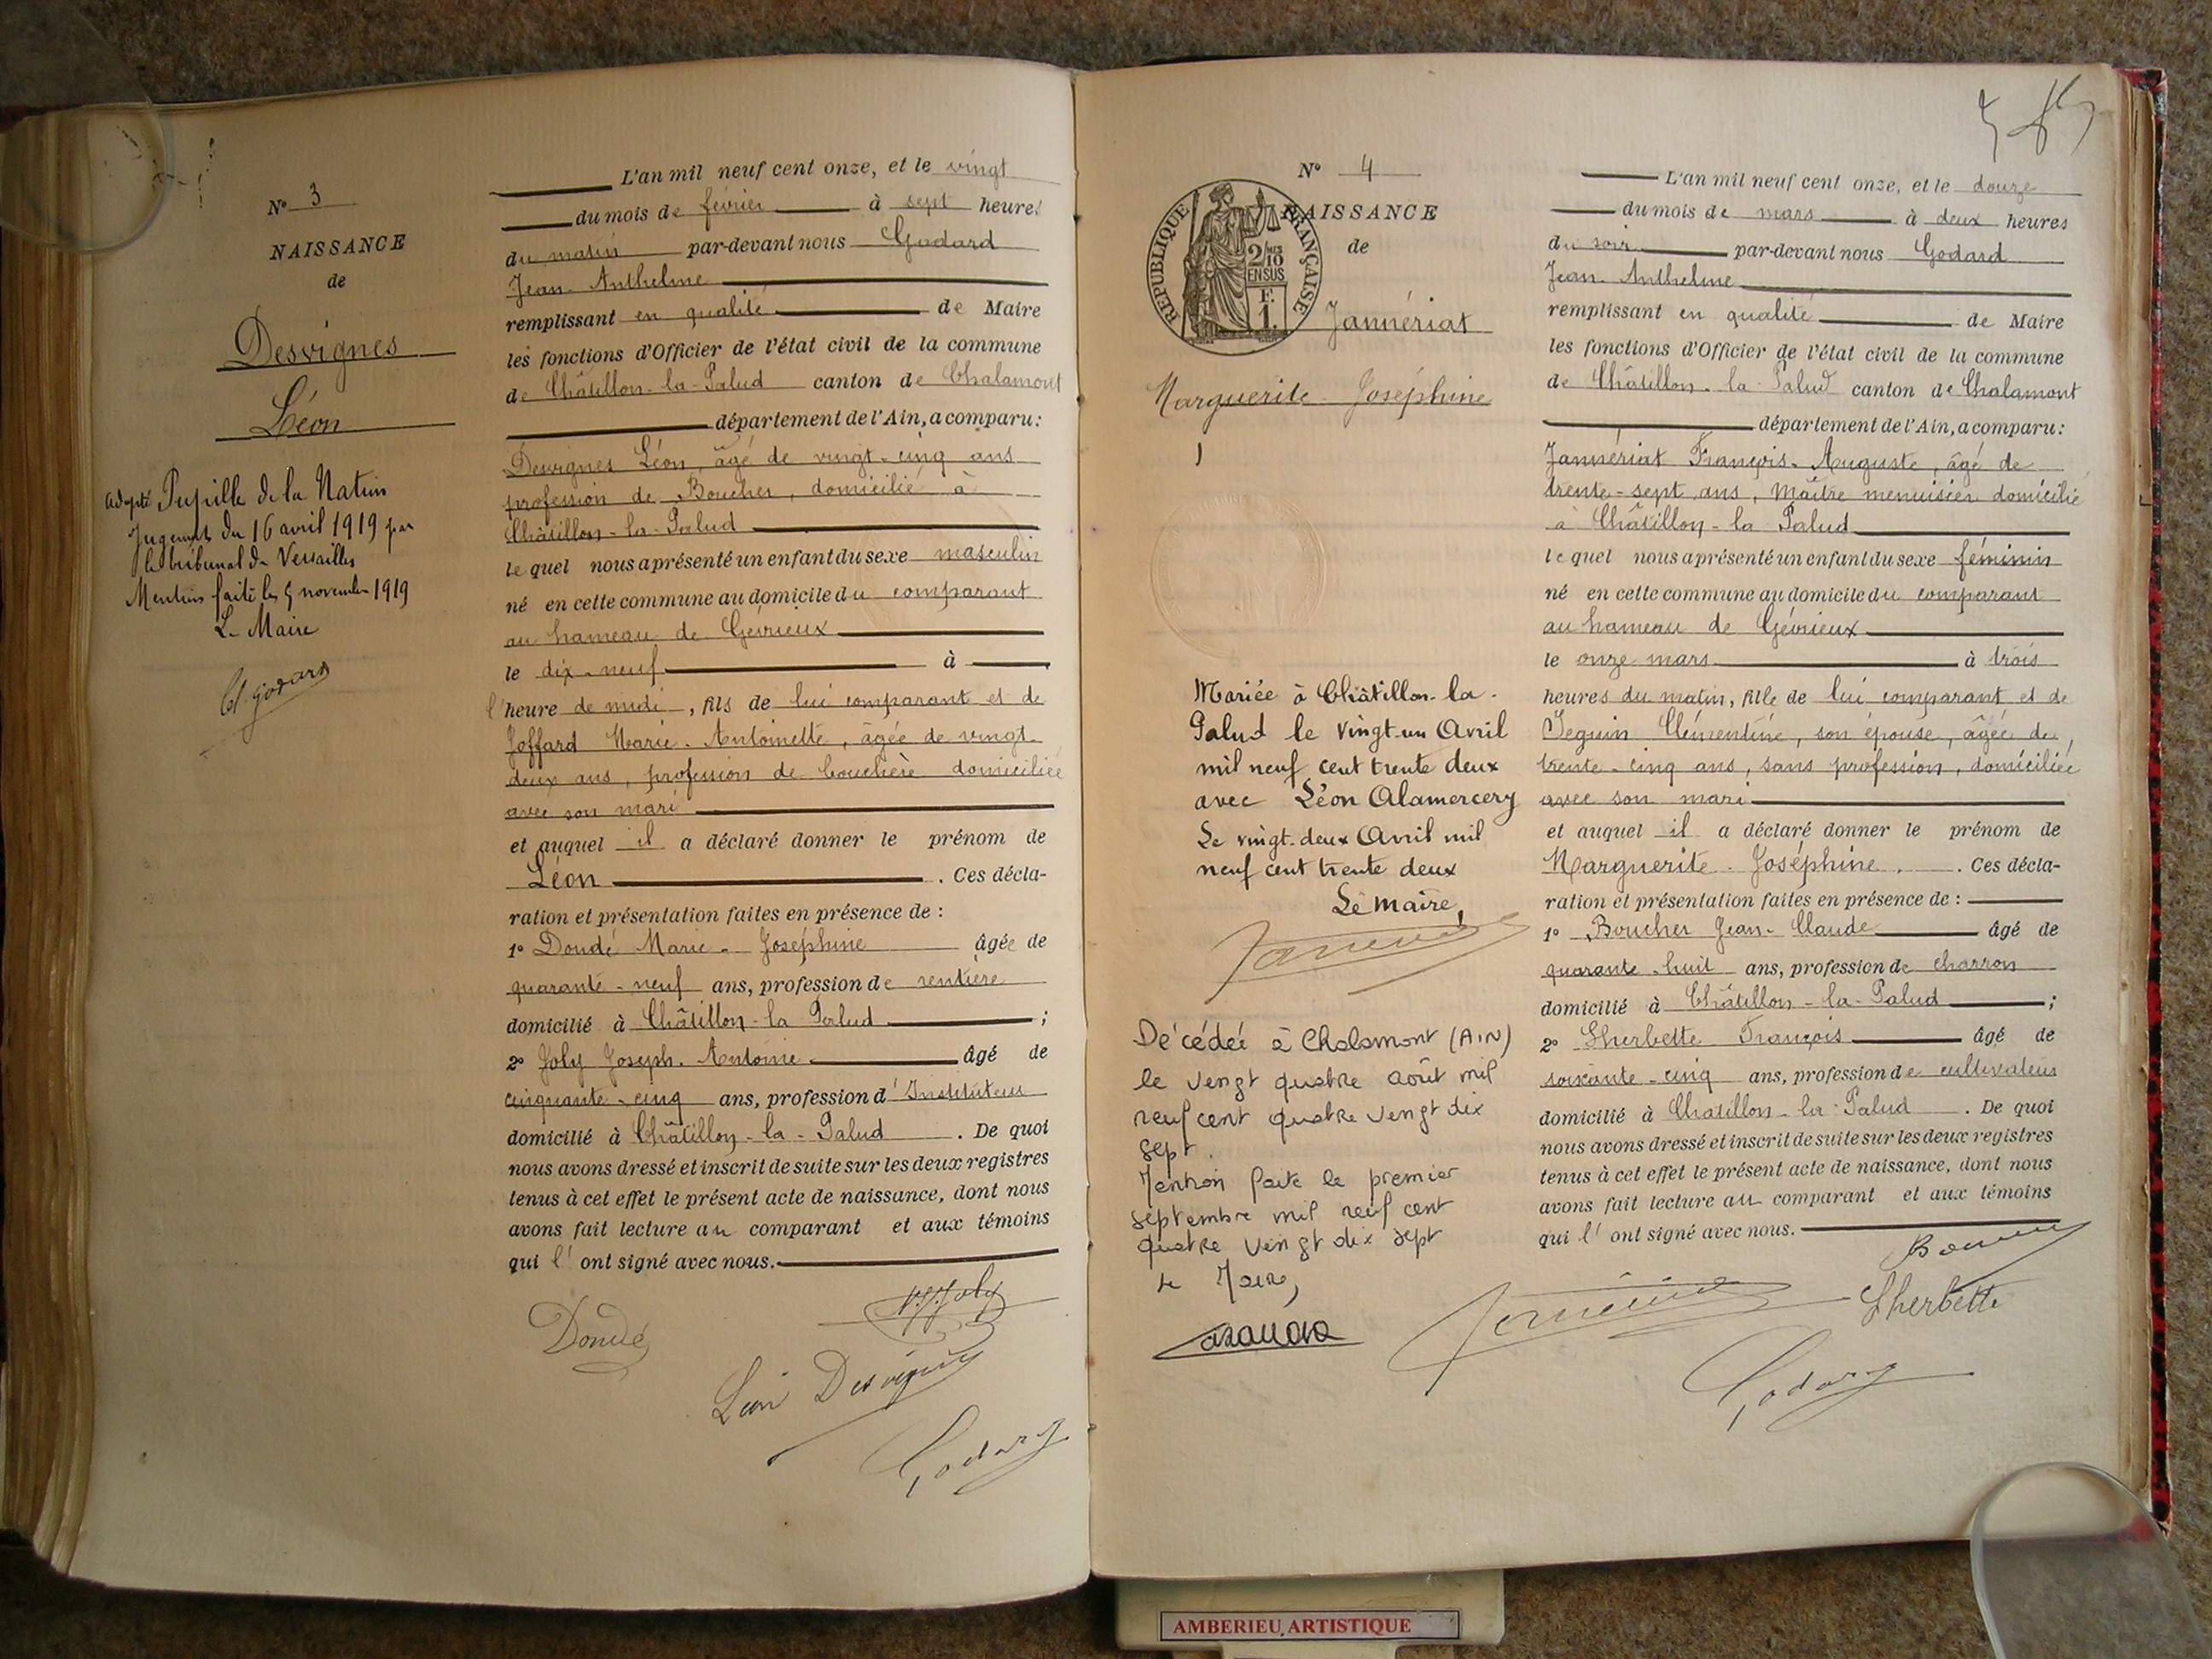 N° 3
NAISSANCE
de
Desvignes
Léon
adopté Pupille de la Nation
Jugement du 16 avril 1919 par
le tribunal de Versailles
Mention faite le 5 novembre 1919
Le Maire
Godard
L'an mil neuf cent onze, et le vingt
du mois de février à sept heures
du matin par-devant nous Godard
Jean-Anthelme
remplissant en qualité de Maire
les fonctions d'Officier de l'état civil de la commune
de Châtillon-la-Palud canton de Chalamont
département de l'Ain, a comparu:
Desvignes Léon, âgé de vingt-cinq ans
profession de Boucher, domicilié à
Châtillon-la-Palud
lequel nous a présenté un enfant du sexe masculin
né en cette commune au domicile du comparant
au hameau de Gévrieux
le dix-neuf à
l'heure de midi, fils de lui comparant et de
Joffard Marie-Antoinette, âgée de vingt-
deux ans, profession de bouchère domiciliée
avec son mari
et auquel il a déclaré donner le prénom de
Léon. Ces décla-
ration et présentation faites en présence de :
1° Doudé Marie-Joséphine âgée de
quarante-neuf ans, profession de rentière
domicilié à Châtillon-la-Palud ;
2° Joly Joseph-Antoine âgé de
cinquante-cinq ans, profession d'Instituteur
domicilié à Châtillon-la-Palud. De quoi
nous avons dressé et inscrit de suite sur les deux registres
tenus à cet effet le présent acte de naissance, dont nous
avons fait lecture au comparant et aux témoins
qui l'ont signé avec nous.
Joly
Doudé
Léon Desvignes
Godard
N° 4
NAISSANCE
de
REPUBLIQUE FRANÇAISE
2/10
EN SUS
F.
1.
Jannériat
Marguerite-Joséphine
Mariée à Châtillon-la-
Palud le vingt-un Avril
mil neuf cent trente deux
avec Léon Alamercery
Le vingt-deux Avril mil
neuf cent trente deux
Le maire,
Décédée à Chalamont (AIN)
le vengt quatre août mil
neuf cent quatre vengt dix
sept.
Mention faite le premier
septembre mil neuf cent
quatre vengt dix sept
Le Maire,
L'an mil neuf cent onze, et le douze
du mois de mars à deux heures
du soir par-devant nous Godard
Jean-Anthelme
remplissant en qualité de Maire
les fonctions d'Officier de l'état civil de la commune
de Châtillon-la-Palud canton de Chalamont
département de l'Ain, a comparu:
Jannériat François-Auguste, âgé de
trente-sept ans, Maître menuisier domicilié
à Châtillon-la-Palud
lequel nous a présenté un enfant du sexe féminin
né en cette commune au domicile du comparant
au hameau de Gévrieux
le onze mars à trois
heures du matin, fille de lui comparant et de
Seguin Clémentine, son épouse, âgée de
trente-cinq ans, sans profession, domiciliée
avec son mari
et auquel il a déclaré donner le prénom de
Marguerite-Joséphine. Ces décla-
ration et présentation faites en présence de :
1° Boucher Jean-Claude âgé de
quarante-huit ans, profession de charron
domicilié à Châtillon-la-Palud ;
2° Lherbette François âgé de
soixante-cinq ans, profession de cultivateur
domicilié à Chatillon-la-Palud. De quoi
nous avons dressé et inscrit de suite sur les deux registres
tenus à cet effet le présent acte de naissance, dont nous
avons fait lecture au comparant et aux témoins
qui l'ont signé avec nous.
Lherbette
Godard
AMBERIEU ARTISTIQUE